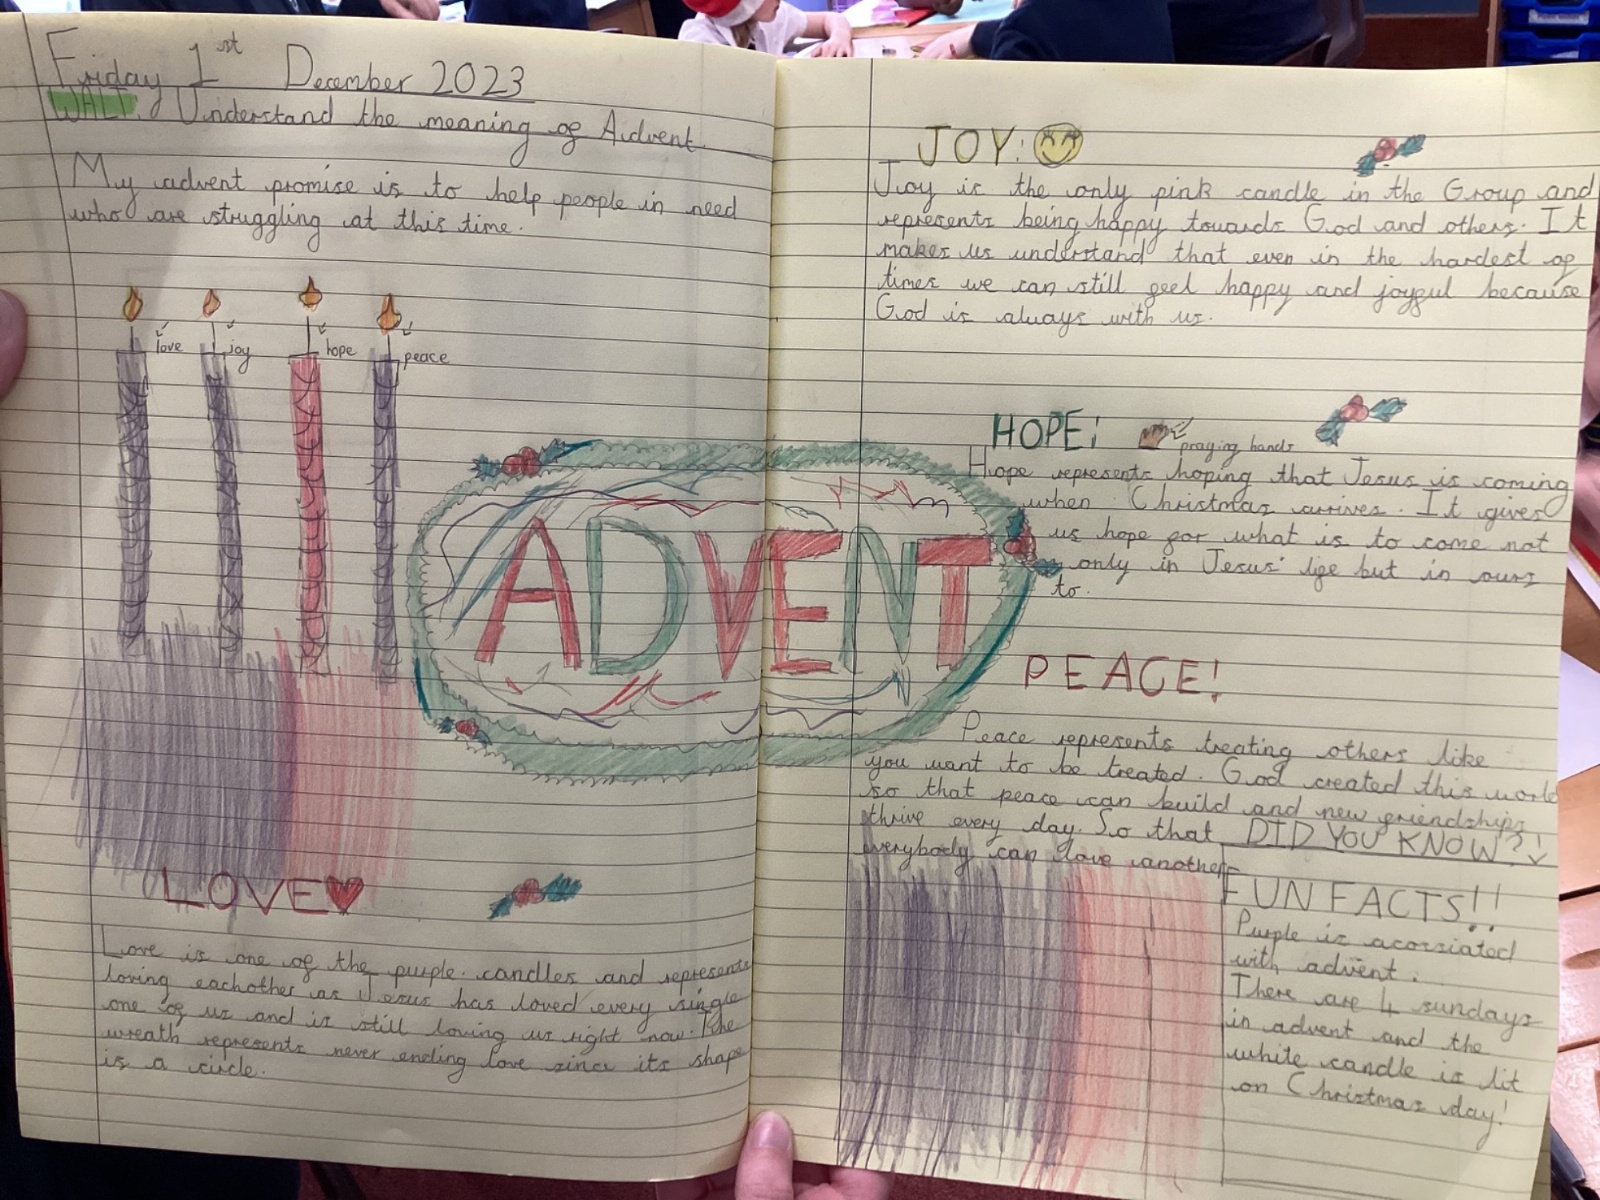 Friday 1st December 2023
WALT: Understand the meaning of Advent.
My advent promise is to help people in need
who are struggling at this time.
love
joy
hope
peace
ADVENT
LOVE
Love is one of the purple candles and represents
loving eachother as Jesus has loved every single
one of us and is still loving us right now. The
wreath represents never ending love since its shape
is a circle.
JOY:
Joy is the only pink candle in the Group and
represents being happy towards God and others. It
makes us understand that even in the hardest of
times we can still feel happy and joyful because
God is always with us.
HOPE:
praying hands
Hope represents hoping that Jesus is coming
when Christmas arrives. It gives
us hope for what is to come not
only in Jesus' life but in ours
to.
PEACE!
Peace represents treating others like
you want to be treated. God created this world
so that peace can build and new friendships
thrive every day. So that
everybody can love another
DID YOU KNOW?!
FUN FACTS!!
Purple is acorsiated
with advent.
There are 4 sundays
in advent and the
white candle is lit
on Christmas day!